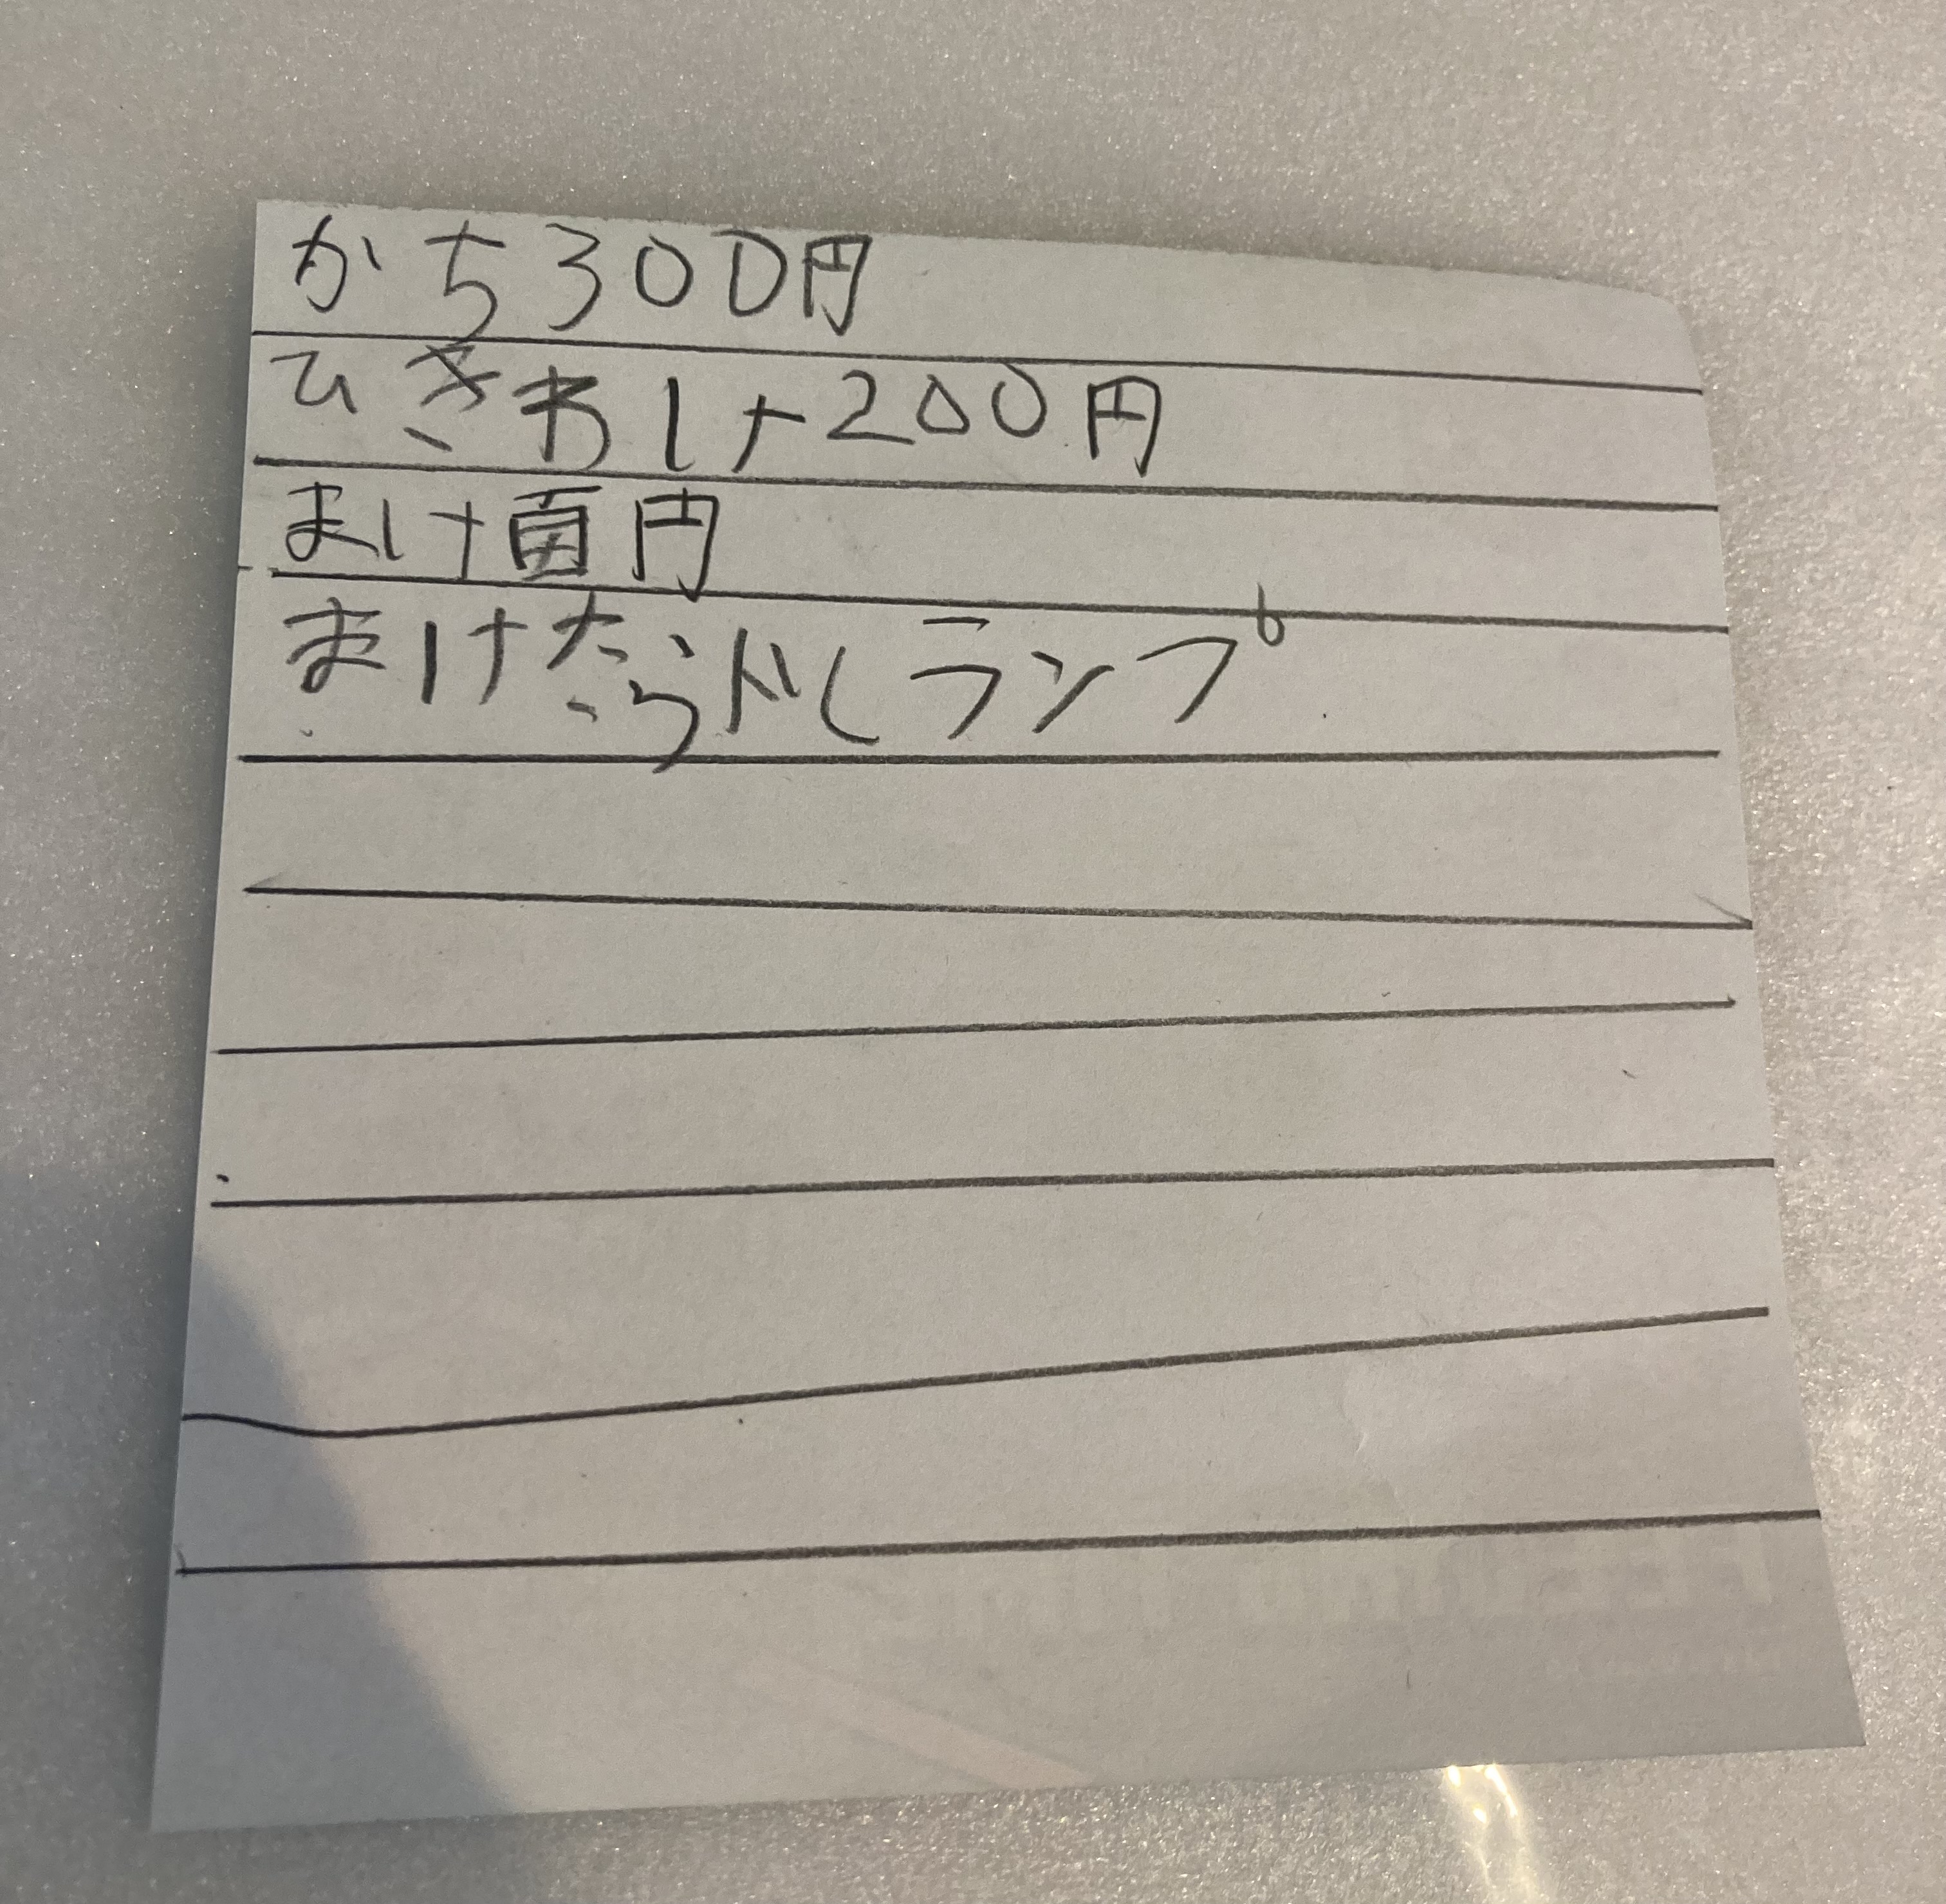 かち300円
ひきわけ200円
まけ百円
まけたらドしランプ